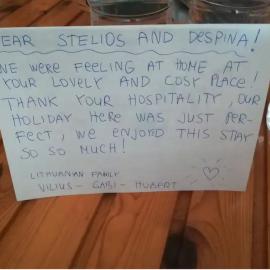 DEAR STELIOS AND DESPINA!
WE WERE FEELING AT HOME AT
YOUR LOVELY AND COSY PLACE!
THANK YOUR HOSPITALITY, OUR
HOLIDAY HERE WAS JUST PER-
FECT, WE ENJOYD THIS STAY
SO SO MUCH!
LITHUANIAN FAMILY
VILIUS - GABI - HUBERT